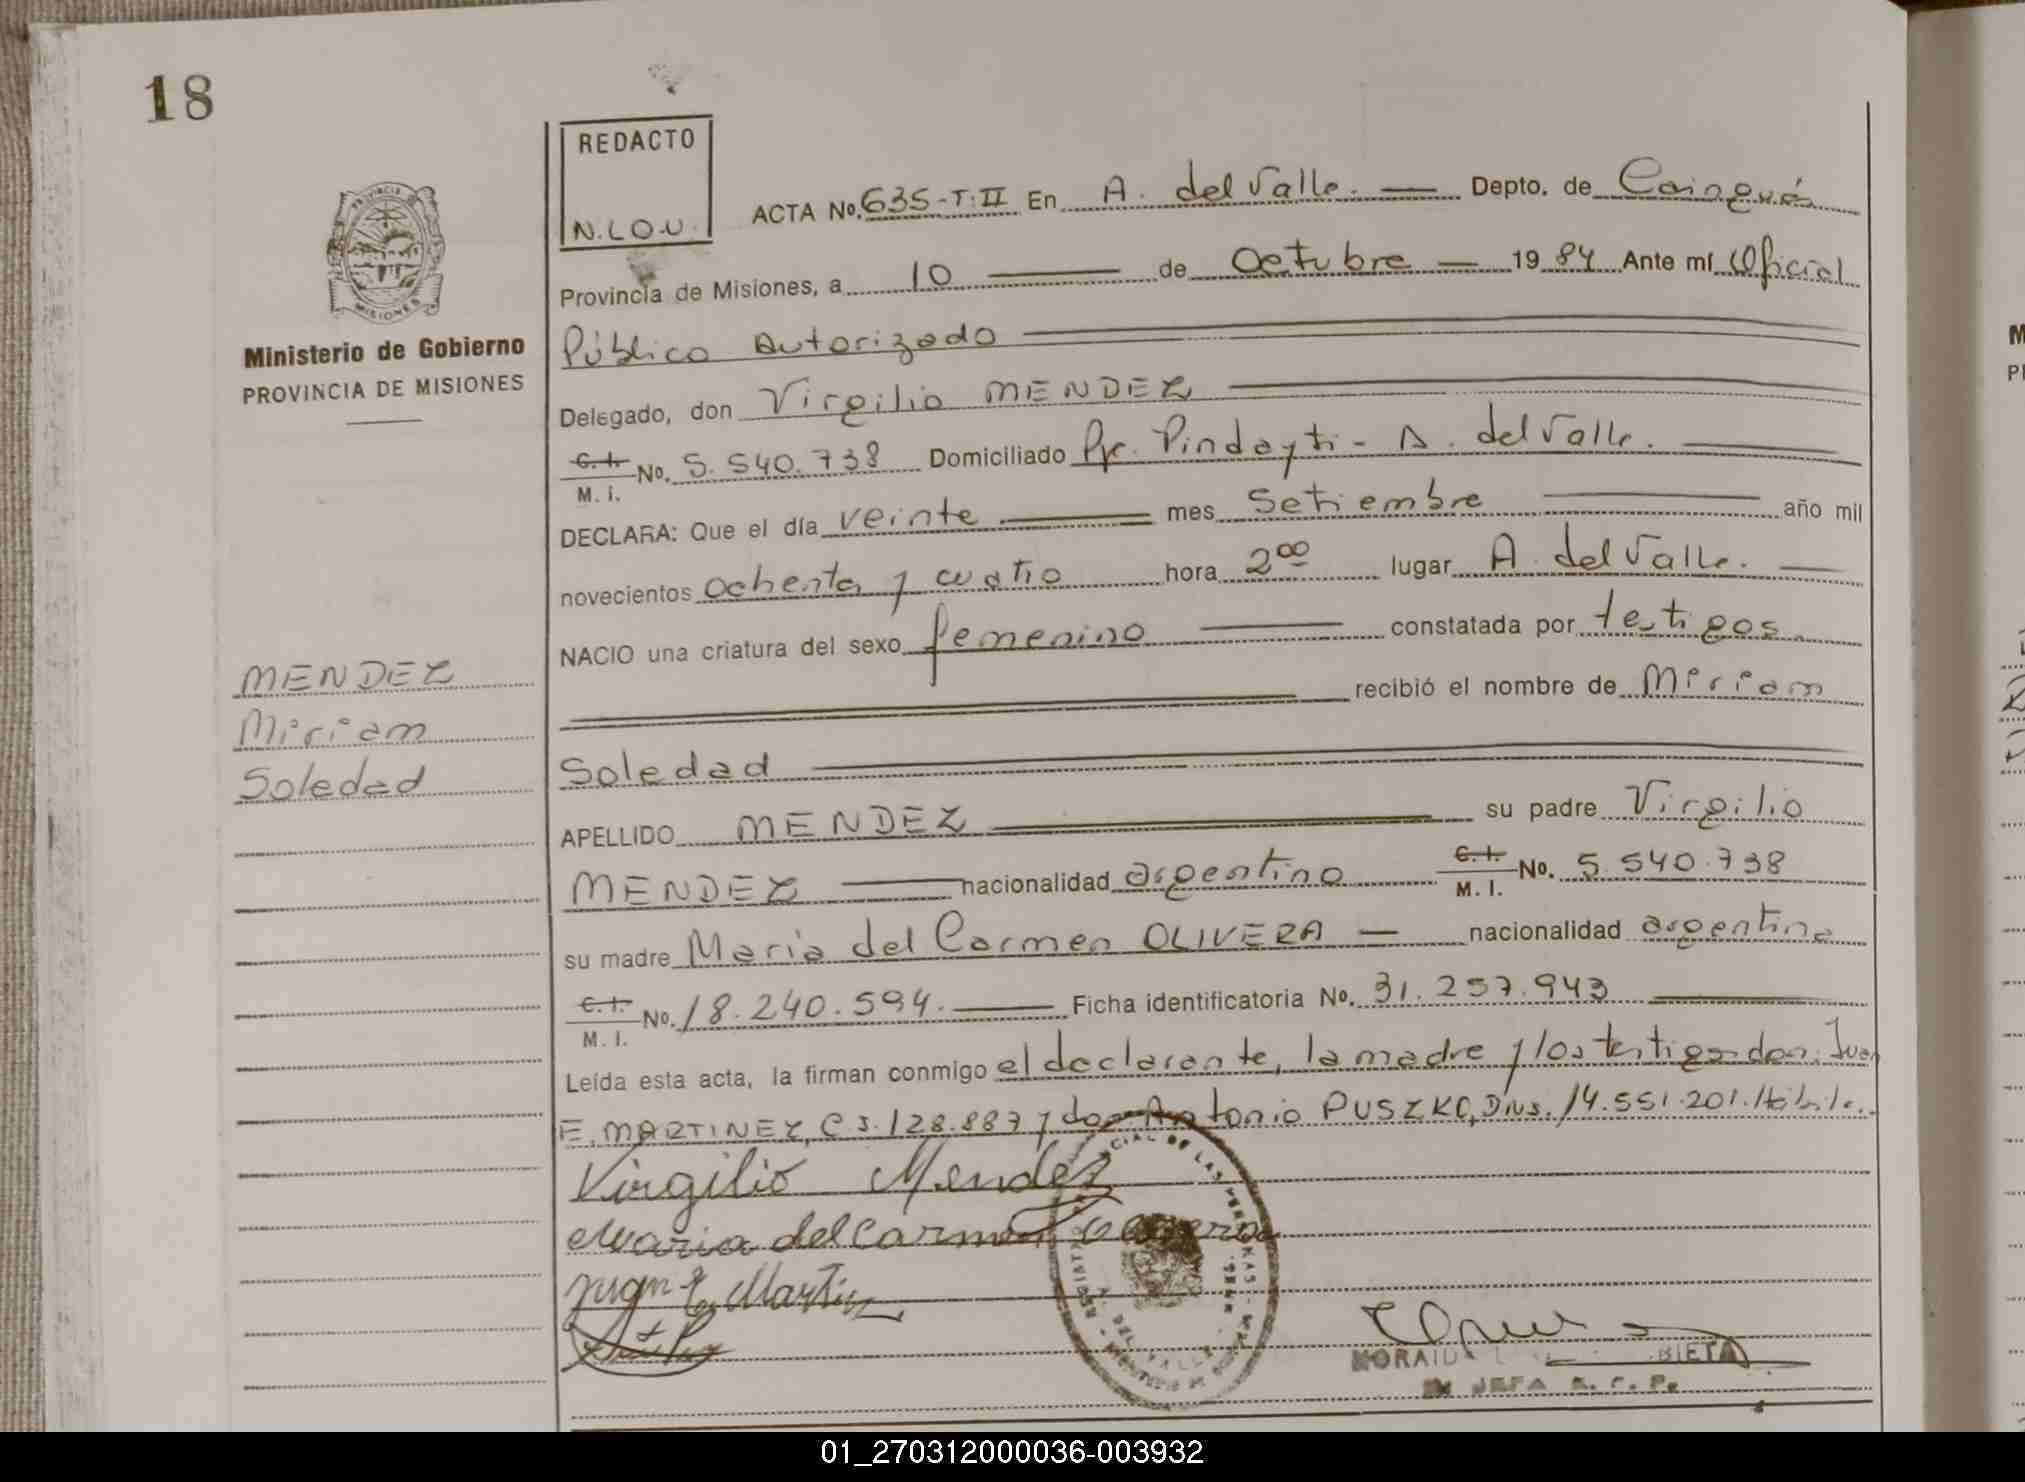 18
REDACTO
N.L.O.U.
ACTA No. 635-T.II En A. del Valle. Depto. de Cainguás
Provincia de Misiones, a 10 de Octubre 19 84 Ante mí Oficial
Ministerio de Gobierno
PROVINCIA DE MISIONES
Público Autorizado
Delegado, don Virgilio MENDEZ
C.I.
M. i. No. 5.540.738 Domiciliado Pje. Pindayti - A. del Valle.
DECLARA: Que el día veinte mes Setiembre año mil
novecientos ochenta y cuatro hora 2 00 lugar A. del Valle.
NACIO una criatura del sexo femenino constatada por testigos
recibió el nombre de Miriam
MENDEZ
Miriam
Soledad
Soledad
APELLIDO MENDEZ su padre Virgilio
MENDEZ nacionalidad argentino C.I. M. I. No. 5.540.738
su madre Maria del Carmen OLIVERA nacionalidad argentina
C.I.
M. I. No. 18.240.594. Ficha identificatoria No. 31.257.943
Leída esta acta, la firman conmigo el declarante, la madre y los testigos don: Juan
E. MARTINEZ, C I. 128.887 y don Antonio PUSZKO, DNI. 14.551.201. Hábiles.
Virgilio Mendez
Maria del Carmen Olivera
Juan E. Martinez
PROVINCIA DE MISIONES
DE LAS PERSONAS
A. DEL VALLE
JEFA R. C. P.
01_270312000036-003932